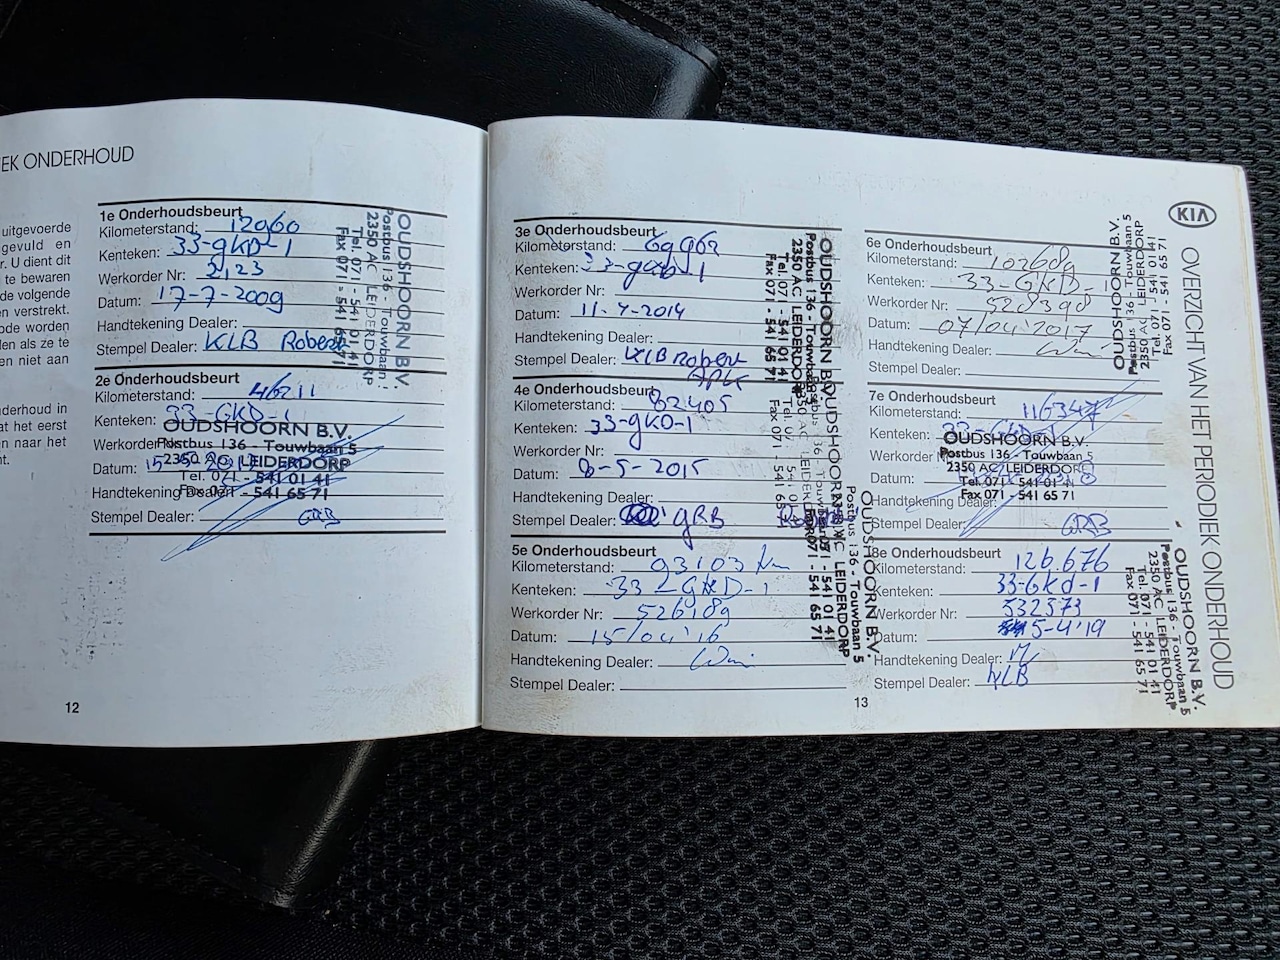 EK ONDERHOUD
uitgevoerde
gevuld en
r. U dient dit
te bewaren
de volgende
en verstrekt.
ode worden
len als ze te
en niet aan
nderhoud in
at het eerst
n naar het
nt.
1e Onderhoudsbeurt
Kilometerstand: 12960
Kenteken: 33-GKD-1
Werkorder Nr: 2123
Datum: 17-7-2009
Handtekening Dealer:
Stempel Dealer: KLB Robert
OUDSHOORN B.V.
Postbus 136 - Touwbaan
2350 AC LEIDERDORP
Tel. 071 - 541 01 41
Fax 071 - 541 65 71
2e Onderhoudsbeurt
Kilometerstand: 46211
Kenteken: 33-GKD-1
Werkorder
Datum: 15-5
Handtekening Dealer:
Stempel Dealer: GRB
OUDSHOORN B.V.
Postbus 136 - Touwbaan 5
2350 AC LEIDERDORP
Tel. 071 - 541 01 41
Fax 071 - 541 65 71
12
3e Onderhoudsbeurt
Kilometerstand: 69962
Kenteken: 33-GKD-1
Werkorder Nr:
Datum: 11-4-2014
Handtekening Dealer:
Stempel Dealer: KLB Robert
APK
OUDSHOORN B.V.
Postbus 136 - Touwbaan 5
2350 AC LEIDERDORP
Tel. 071 - 541 01 41
Fax 071 - 541 65 71
4e Onderhoudsbeurt
Kilometerstand: 82405
Kenteken: 33-GKD-1
Werkorder Nr:
Datum: 8-5-2015
Handtekening Dealer:
Stempel Dealer: GRB
5e Onderhoudsbeurt
Kilometerstand: 93103 km
Kenteken: 33-GKD-1
Werkorder Nr: 526189
Datum: 15/04'16
Handtekening Dealer:
Stempel Dealer:
OUDSHOORN B.V.
Postbus 136 - Touwbaan 5
2350 AC LEIDERDORP
Tel. 071 - 541 01 41
Fax 071 - 541 65 71
13
6e Onderhoudsbeurt
Kilometerstand: 102689
Kenteken: 33-GKD-1
Werkorder Nr: 528398
Datum: 07/04'2017
Handtekening Dealer:
Stempel Dealer:
OUDSHOORN B.V.
Postbus 136 - Touwbaan 5
2350 AC LEIDERDORP
Tel. 071 - 541 01 41
Fax 071 - 541 65 71
7e Onderhoudsbeurt
Kilometerstand: 116347
Kenteken: 33-GKD-1
Werkorder Nr:
Datum:
Handtekening Dealer:
Stempel Dealer: GRB
OUDSHOORN B.V.
Postbus 136 - Touwbaan 5
2350 AC LEIDERDORP
Tel. 071 - 541 01 41
Fax 071 - 541 65 71
8e Onderhoudsbeurt
Kilometerstand: 126.676
Kenteken: 33-GKd-1
Werkorder Nr: 532373
Datum: 5-4'19
Handtekening Dealer:
Stempel Dealer: KLB
OUDSHOORN B.V.
Postbus 136 - Touwbaan 5
2350 AC LEIDERDORP
Tel. 071 - 541 01 41
Fax 071 - 541 65 71
KIA
OVERZICHT VAN HET PERIODIEK ONDERHOUD